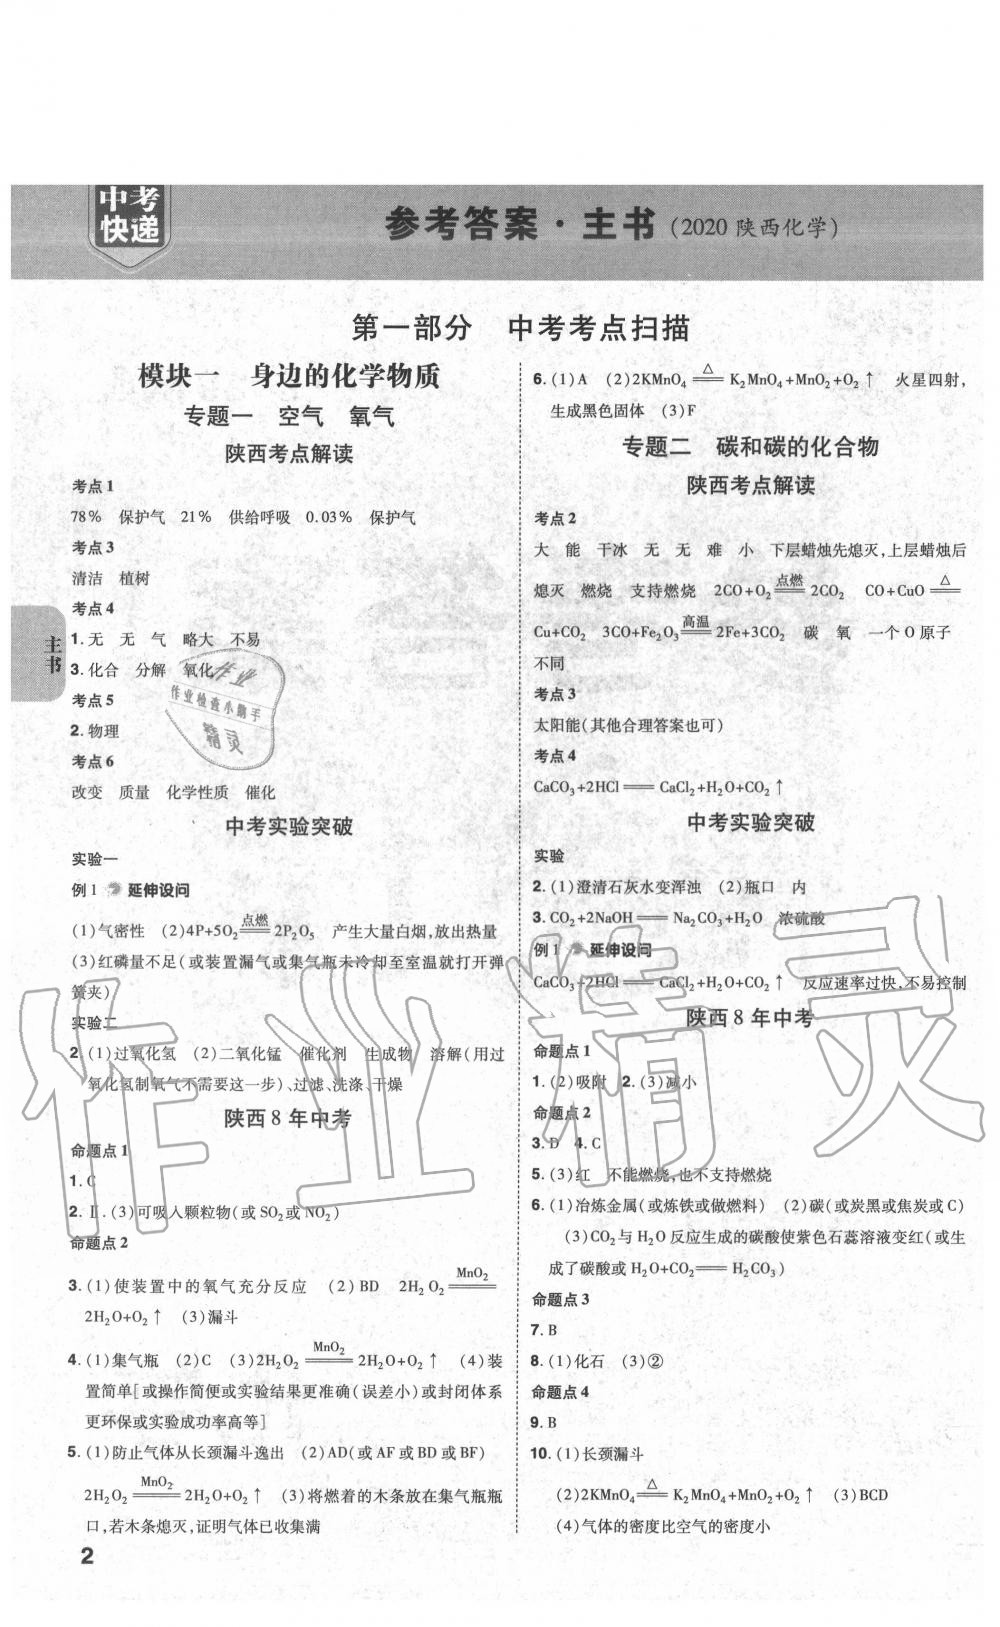 中考
快递
参考答案·主书(2020 陕西化学)
第一部分 中考考点扫描
模块一 身边的化学物质
专题一 空气 氧气
陕西考点解读
考点1
78% 保护气 21% 供给呼吸 0.03% 保护气
考点3
清洁 植树
考点4
1.无 无 气 略大 不易
3.化合 分解 氧化
考点5
2.物理
考点6
改变 质量 化学性质 催化
中考实验突破
实验一
例1 延伸设问
(1)气密性 (2)4P+5O₂ 点燃═══ 2P₂O₅ 产生大量白烟,放出热量
(3)红磷量不足(或装置漏气或集气瓶未冷却至室温就打开弹
簧夹)
实验二
2.(1)过氧化氢 (2)二氧化锰 催化剂 生成物 溶解(用过
氧化氢制氧气不需要这一步)、过滤、洗涤、干燥
陕西8年中考
命题点1
1.C
2.Ⅱ.(3)可吸入颗粒物(或SO₂或NO₂)
命题点2
3.(1)使装置中的氧气充分反应 (2)BD 2H₂O₂ MnO₂═══
2H₂O+O₂↑ (3)漏斗
4.(1)集气瓶 (2)C (3)2H₂O₂ MnO₂═══ 2H₂O+O₂↑ (4)装
置简单[或操作简便或实验结果更准确(误差小)或封闭体系
更环保或实验成功率高等]
5.(1)防止气体从长颈漏斗逸出 (2)AD(或AF或BD或BF)
2H₂O₂ MnO₂═══ 2H₂O+O₂↑ (3)将燃着的木条放在集气瓶瓶
口,若木条熄灭,证明气体已收集满
6.(1)A (2)2KMnO₄ △═══ K₂MnO₄+MnO₂+O₂↑ 火星四射,
生成黑色固体 (3)F
专题二 碳和碳的化合物
陕西考点解读
考点2
大 能 干冰 无 无 难 小 下层蜡烛先熄灭,上层蜡烛后
熄灭 燃烧 支持燃烧 2CO+O₂ 点燃═══ 2CO₂ CO+CuO △═══
Cu+CO₂ 3CO+Fe₂O₃ 高温═══ 2Fe+3CO₂ 碳 氧 一个O原子
不同
考点3
太阳能(其他合理答案也可)
考点4
CaCO₃+2HCl═══CaCl₂+H₂O+CO₂↑
中考实验突破
实验
2.(1)澄清石灰水变浑浊 (2)瓶口 内
3.CO₂+2NaOH═══Na₂CO₃+H₂O 浓硫酸
例1 延伸设问
CaCO₃+2HCl═══CaCl₂+H₂O+CO₂↑ 反应速率过快,不易控制
陕西8年中考
命题点1
1.(2)吸附 2.(3)减小
命题点2
3.D 4.C
5.(3)红 不能燃烧,也不支持燃烧
6.(1)冶炼金属(或炼铁或做燃料) (2)碳(或炭黑或焦炭或C)
(3)CO₂与H₂O反应生成的碳酸使紫色石蕊溶液变红(或生
成了碳酸或H₂O+CO₂═══H₂CO₃)
命题点3
7.B
8.(1)化石 (3)②
命题点4
9.B
10.(1)长颈漏斗
(2)2KMnO₄ △═══ K₂MnO₄+MnO₂+O₂↑ (3)BCD
(4)气体的密度比空气的密度小
主书
作业
作业检查小助手
精灵
作业精灵
2